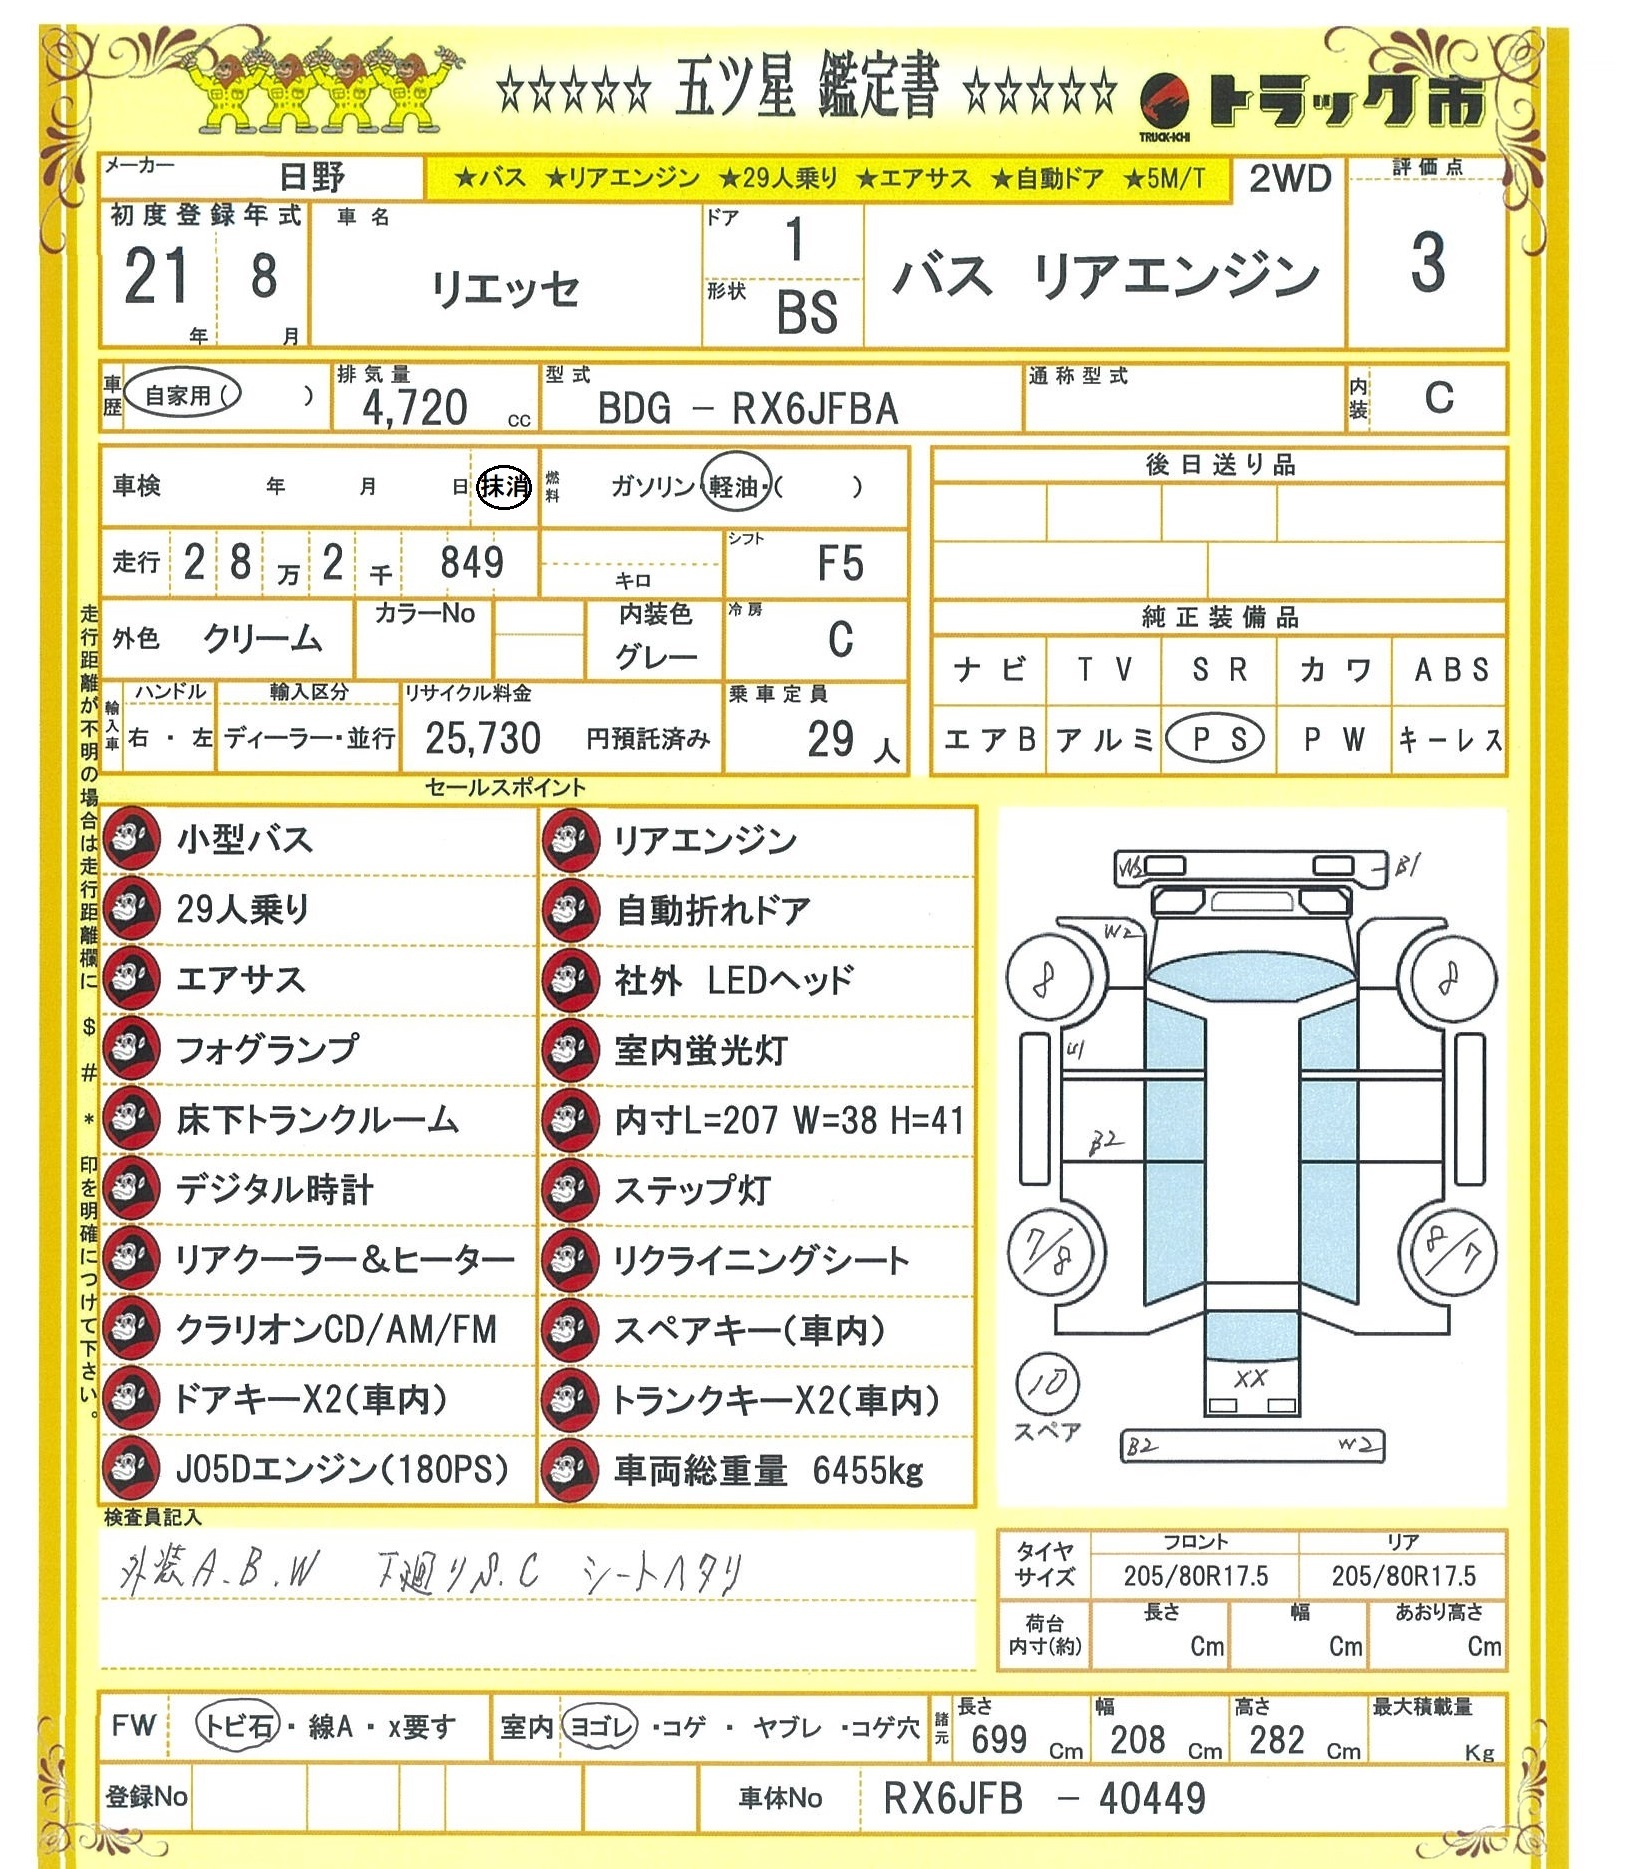 ☆☆☆☆☆ 五ツ星 鑑定書 ☆☆☆☆☆
TRUCK-ICHI
トラック市
メーカー 日野
★バス ★リアエンジン ★29人乗り ★エアサス ★自動ドア ★5M/T
2WD
評価点
3
初度登録年式
21年 8月
車名
リエッセ
ドア 1
形状 BS
バス リアエンジン
車歴 自家用( )
排気量 4,720 cc
型式 BDG - RX6JFBA
通称型式
内装 C
車検 年 月 日 抹消
燃料 ガソリン・軽油・( )
走行 28万2千849
キロ
シフト F5
外色 クリーム
カラーNo
内装色 グレー
冷房 C
輸入車
ハンドル 右・左
輸入区分 ディーラー・並行
リサイクル料金 25,730 円預託済み
乗車定員 29人
後日送り品
純正装備品
ナビ TV SR カワ ABS
エアB アルミ PS PW キーレス
走行距離が不明の場合は走行距離欄に $ # * 印を明確につけて下さい。
セールスポイント
小型バス リアエンジン
29人乗り 自動折れドア
エアサス 社外 LEDヘッド
フォグランプ 室内蛍光灯
床下トランクルーム 内寸L=207 W=38 H=41
デジタル時計 ステップ灯
リアクーラー&ヒーター リクライニングシート
クラリオンCD/AM/FM スペアキー(車内)
ドアキーX2(車内) トランクキーX2(車内)
J05Dエンジン(180PS) 車両総重量 6455kg
B1
W2
8 8
B2
7/8 8/7
XX
10
スペア
B2 W2
検査員記入
外装A.B.W 下廻りS.C シートヘタリ
タイヤサイズ
フロント 205/80R17.5
リア 205/80R17.5
荷台内寸(約)
長さ Cm 幅 Cm あおり高さ Cm
FW トビ石・線A・x要す
室内 ヨゴレ・コゲ・ヤブレ・コゲ穴
諸元 長さ 699 Cm 幅 208 Cm 高さ 282 Cm 最大積載量 Kg
登録No
車体No RX6JFB - 40449